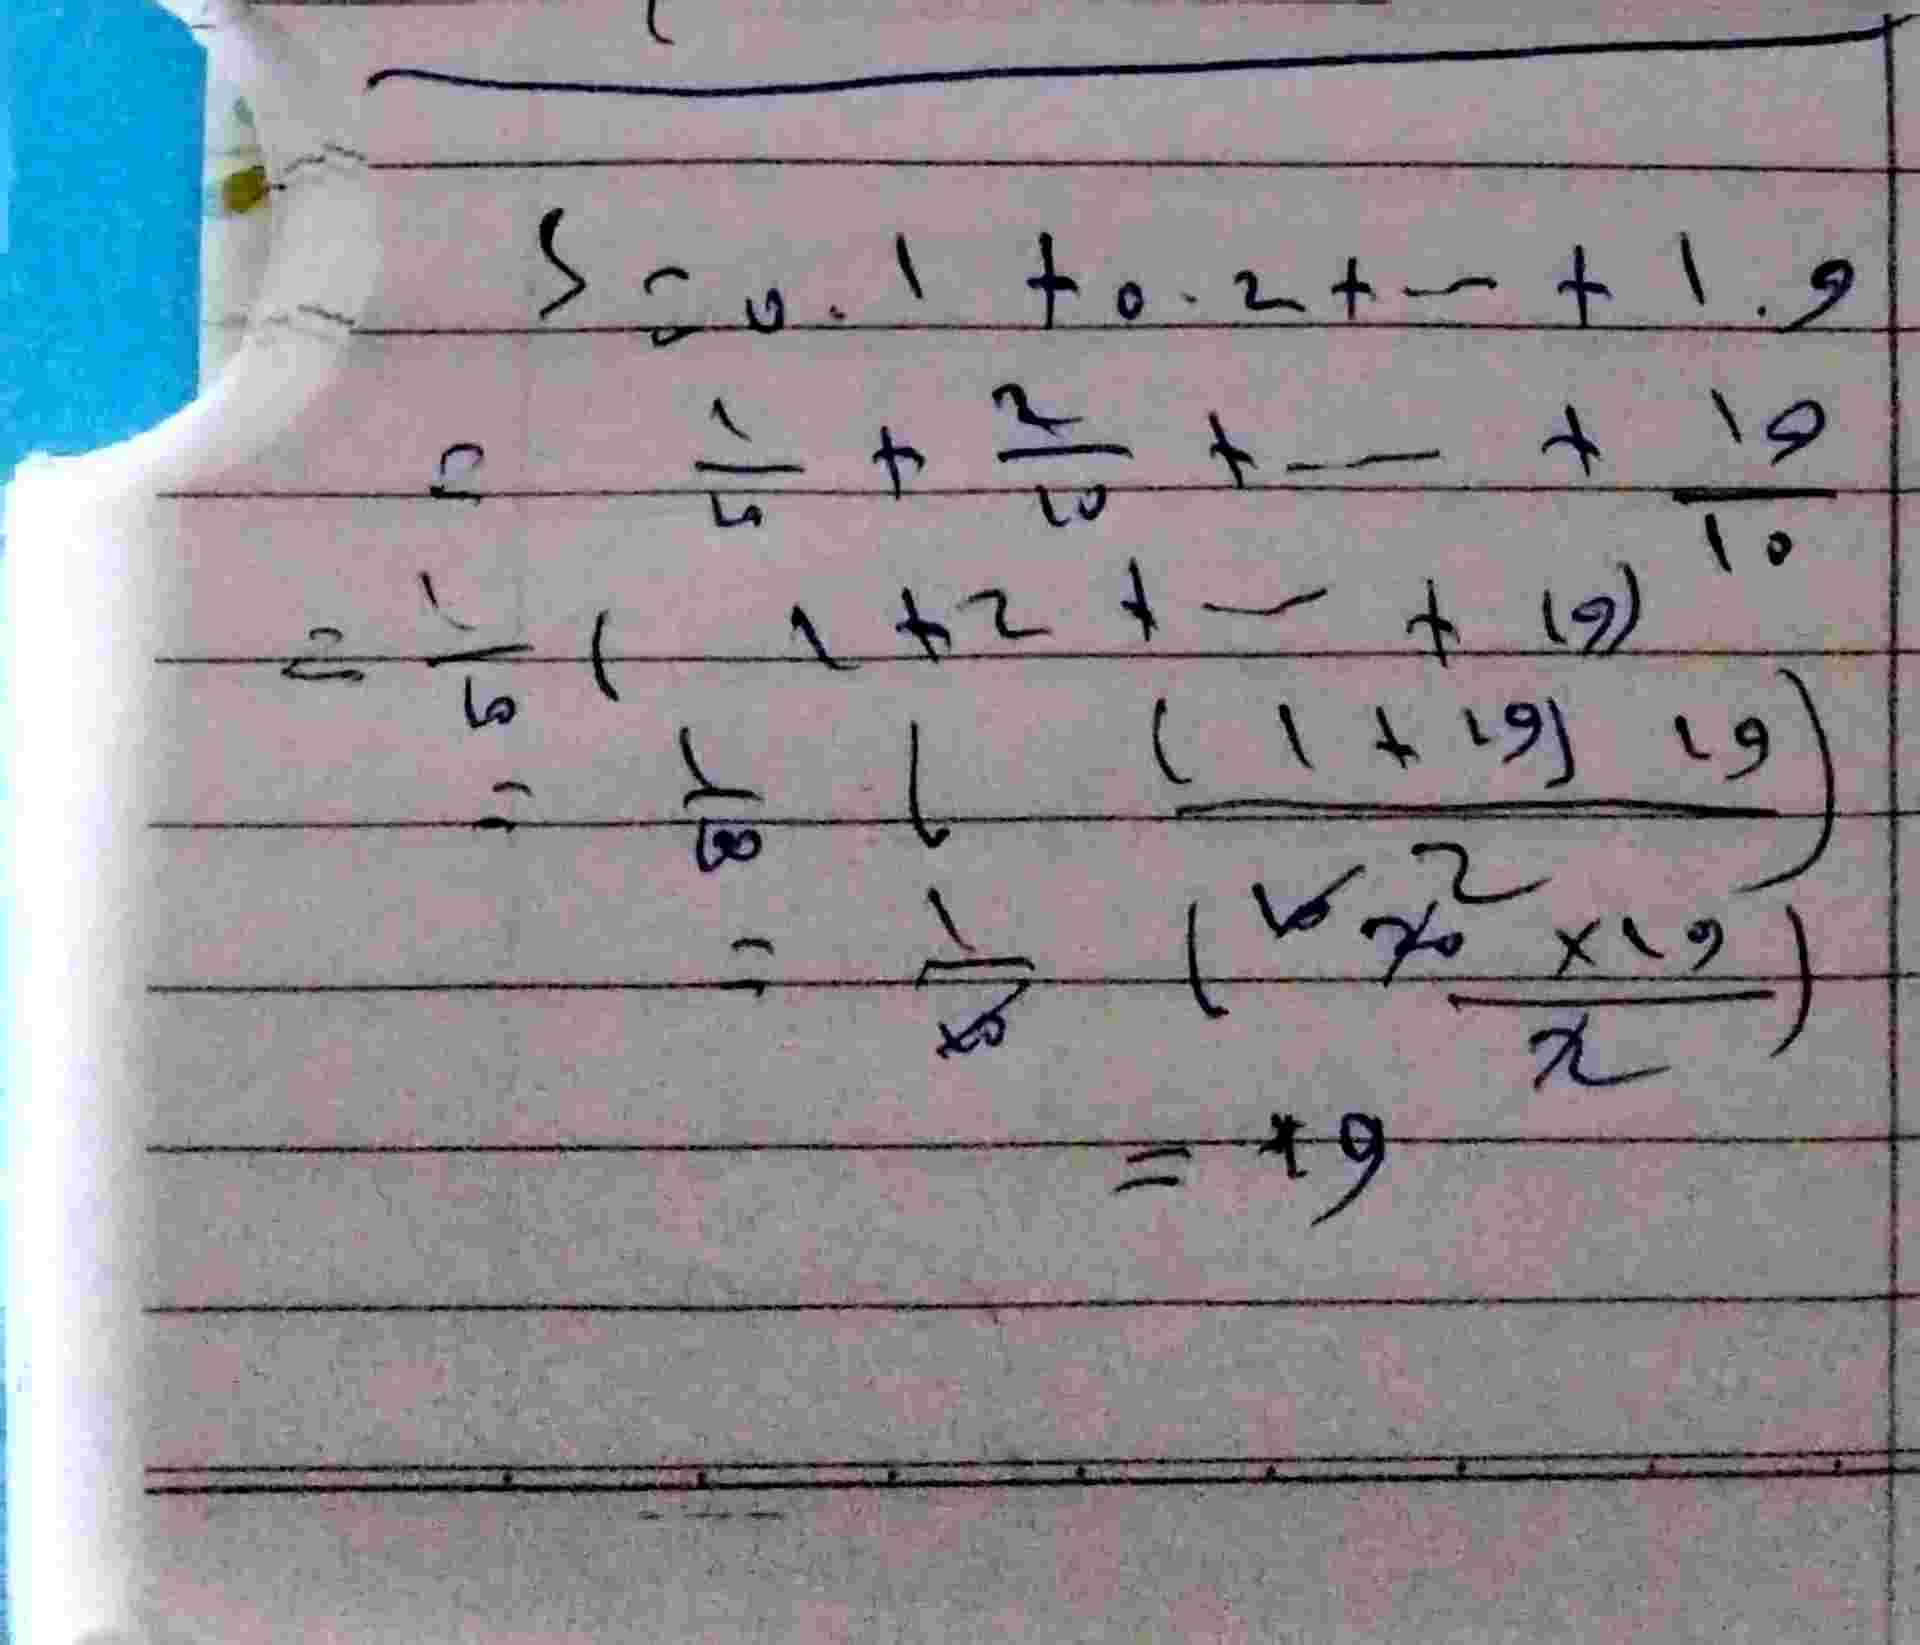 S = 0.1 + 0.2 + --- + 1.9
= 1/10 + 2/10 + --- + 19/10
= 1/10 ( 1 + 2 + --- + 19)
= 1/10 ( (1 + 19) 19 / 2 )
= 1/10 ( 10 20 × 19 / 2 )
= 19